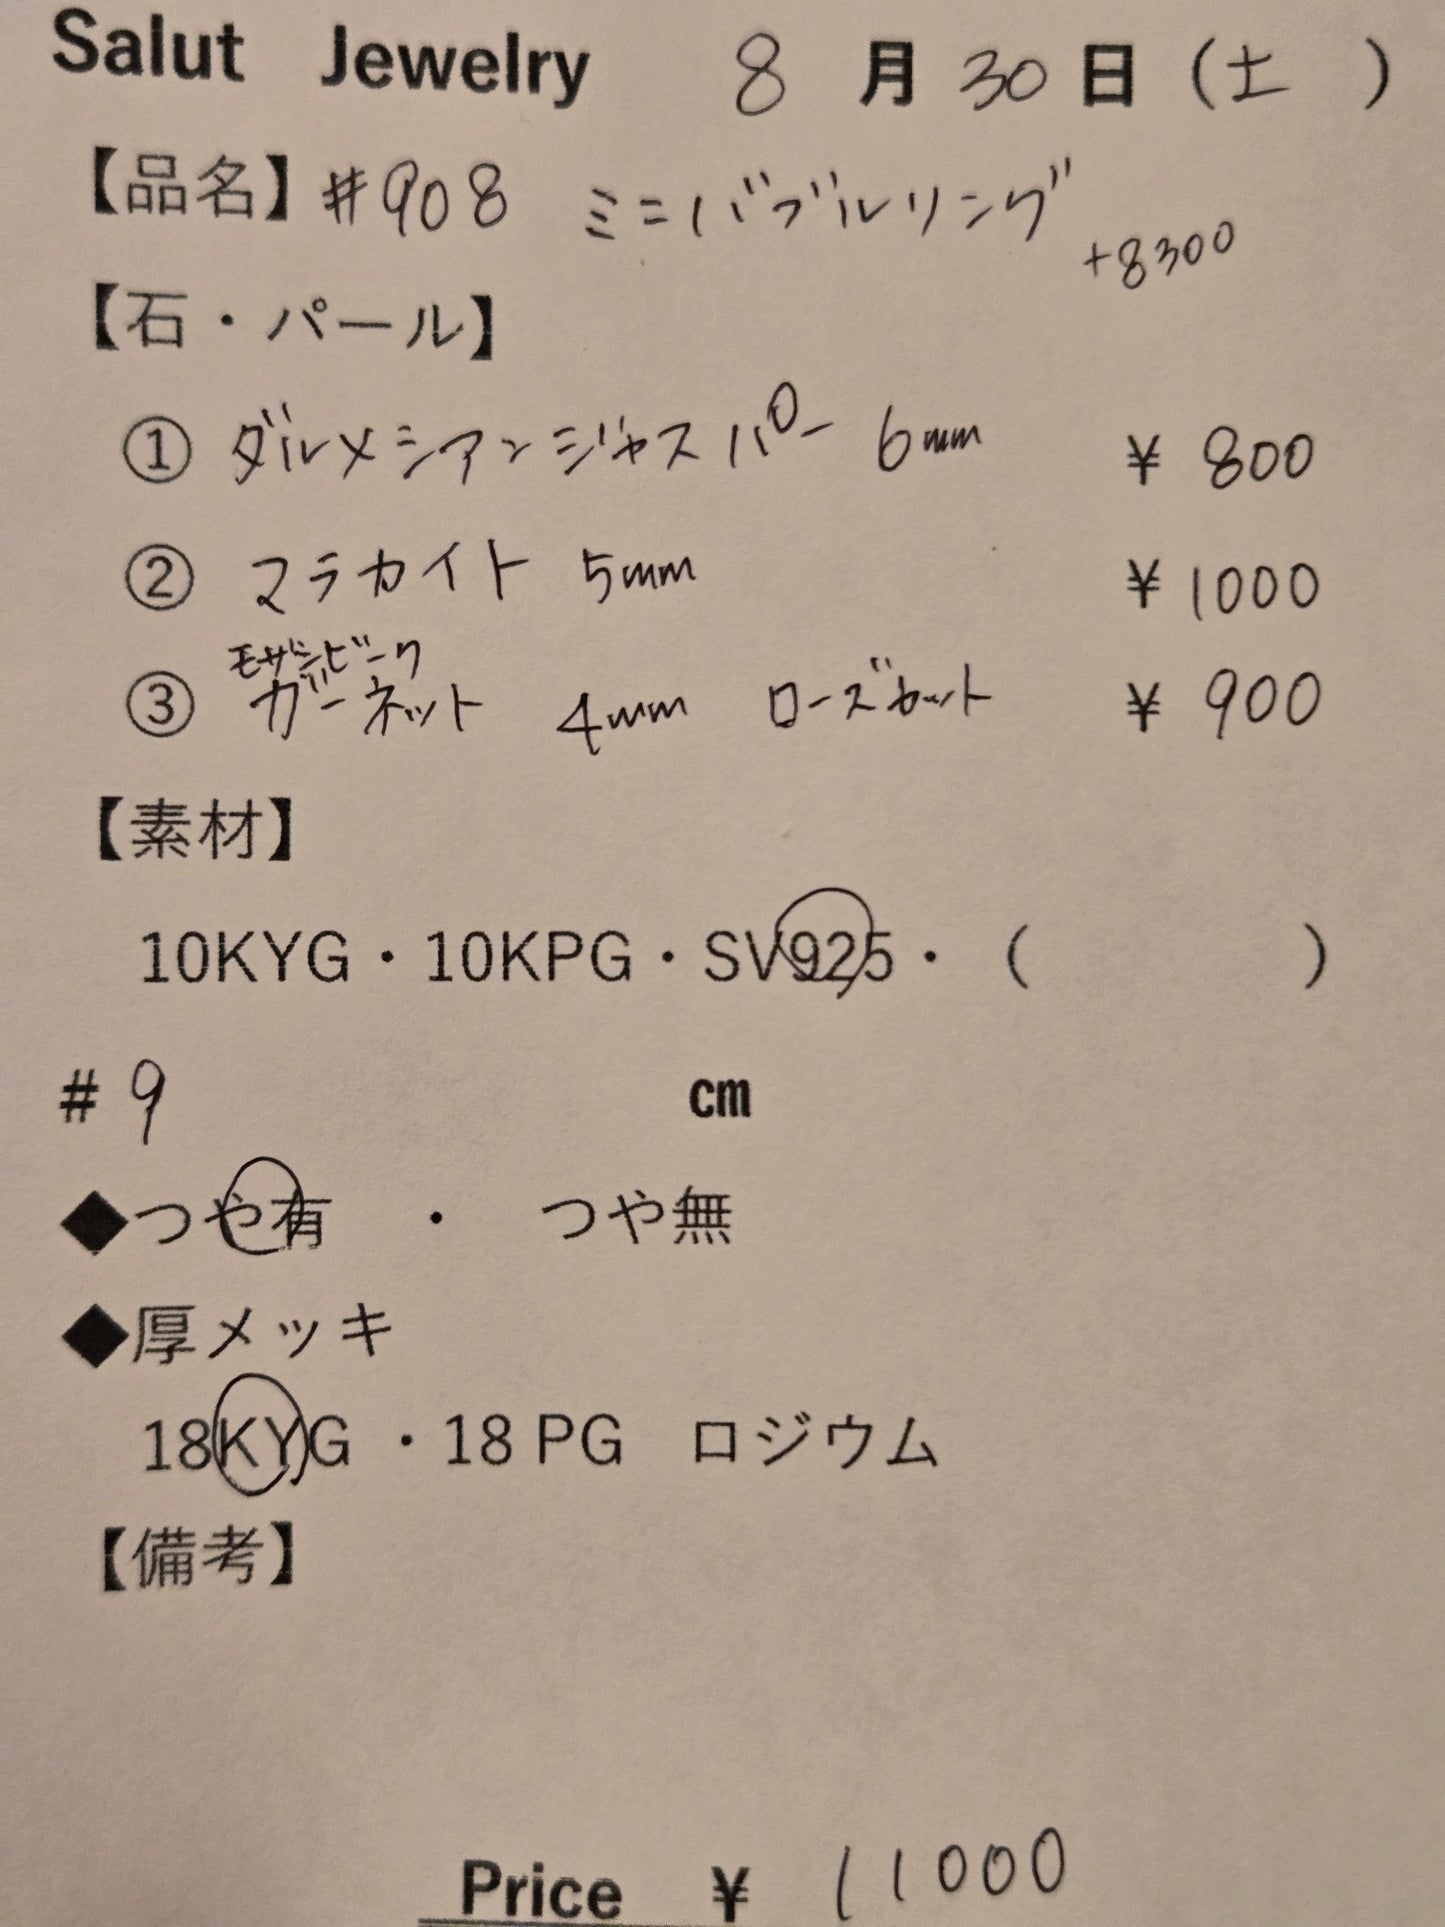 Salut Jewelry 8 月 30 日 (土 )
【品名】#908 ミニバブルリング
+8300
【石・パール】
① ダルメシアンジャスパー 6mm ¥ 800
② マラカイト 5mm ¥ 1000
モザンビーク
③ ガーネット 4mm ローズカット ¥ 900
【素材】
10KYG・10KPG・SV925・( )
# 9 cm
◆つや有 ・ つや無
◆厚メッキ
18KYG ・18 PG ロジウム
【備考】
Price ¥ 11000